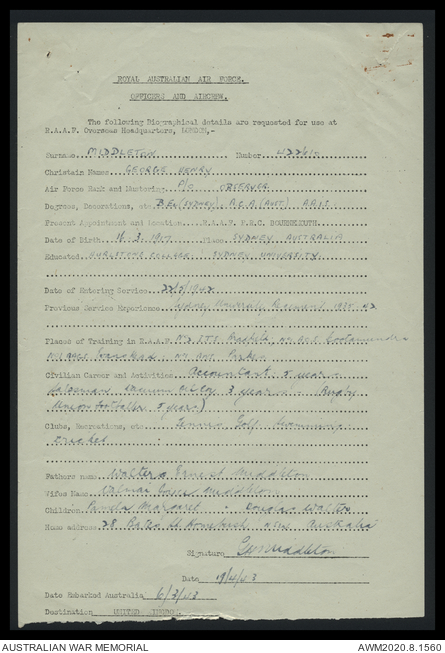 ROYAL AUSTRALIAN AIR FORCE.
OFFICERS AND AIRCREW.
The following Biographical details are requested for use at
R.A.A.F. Overseas Headquarters, LONDON,-
Surname MIDDLETON Number
Christain Names GEORGE HENRY
Air Force Rank and Mustering P/O OBSERVER
Degrees, Decorations, etc. B.Ec (SYDNEY) A.C.A (AUST)
Present Appointment and Location R.A.A.F. P.R.C. BOURNEMOUTH
Date of Birth Place SYDNEY AUSTRALIA
Educated HURLSTONE COLLEGE SYDNEY UNIVERSITY
Date of Entering Service 22/5/1942
Previous Service Experience Sydney University Regiment
Places of Training in R.A.A.F. No 2 ITS Bradfield, Cootamundra
Parkes
Civilian Career and Activities Accountant 5 years
Salesman 3 years Rugby
footballer 5 years)
Clubs, Recreations, etc Tennis Golf Swimming
Cricket
Fathers name Walter Ernest Middleton
Wifes Name Middleton
Children Pamela Margaret Douglas Walter
Home address 28 Bates St Homebush NSW Australia
Signature GHMiddleton
Date 19/4/43
Date Embarked Australia 6/3/43
Destination UNITED KINGDOM.
AUSTRALIAN WAR MEMORIAL
AWM2020.8.1560